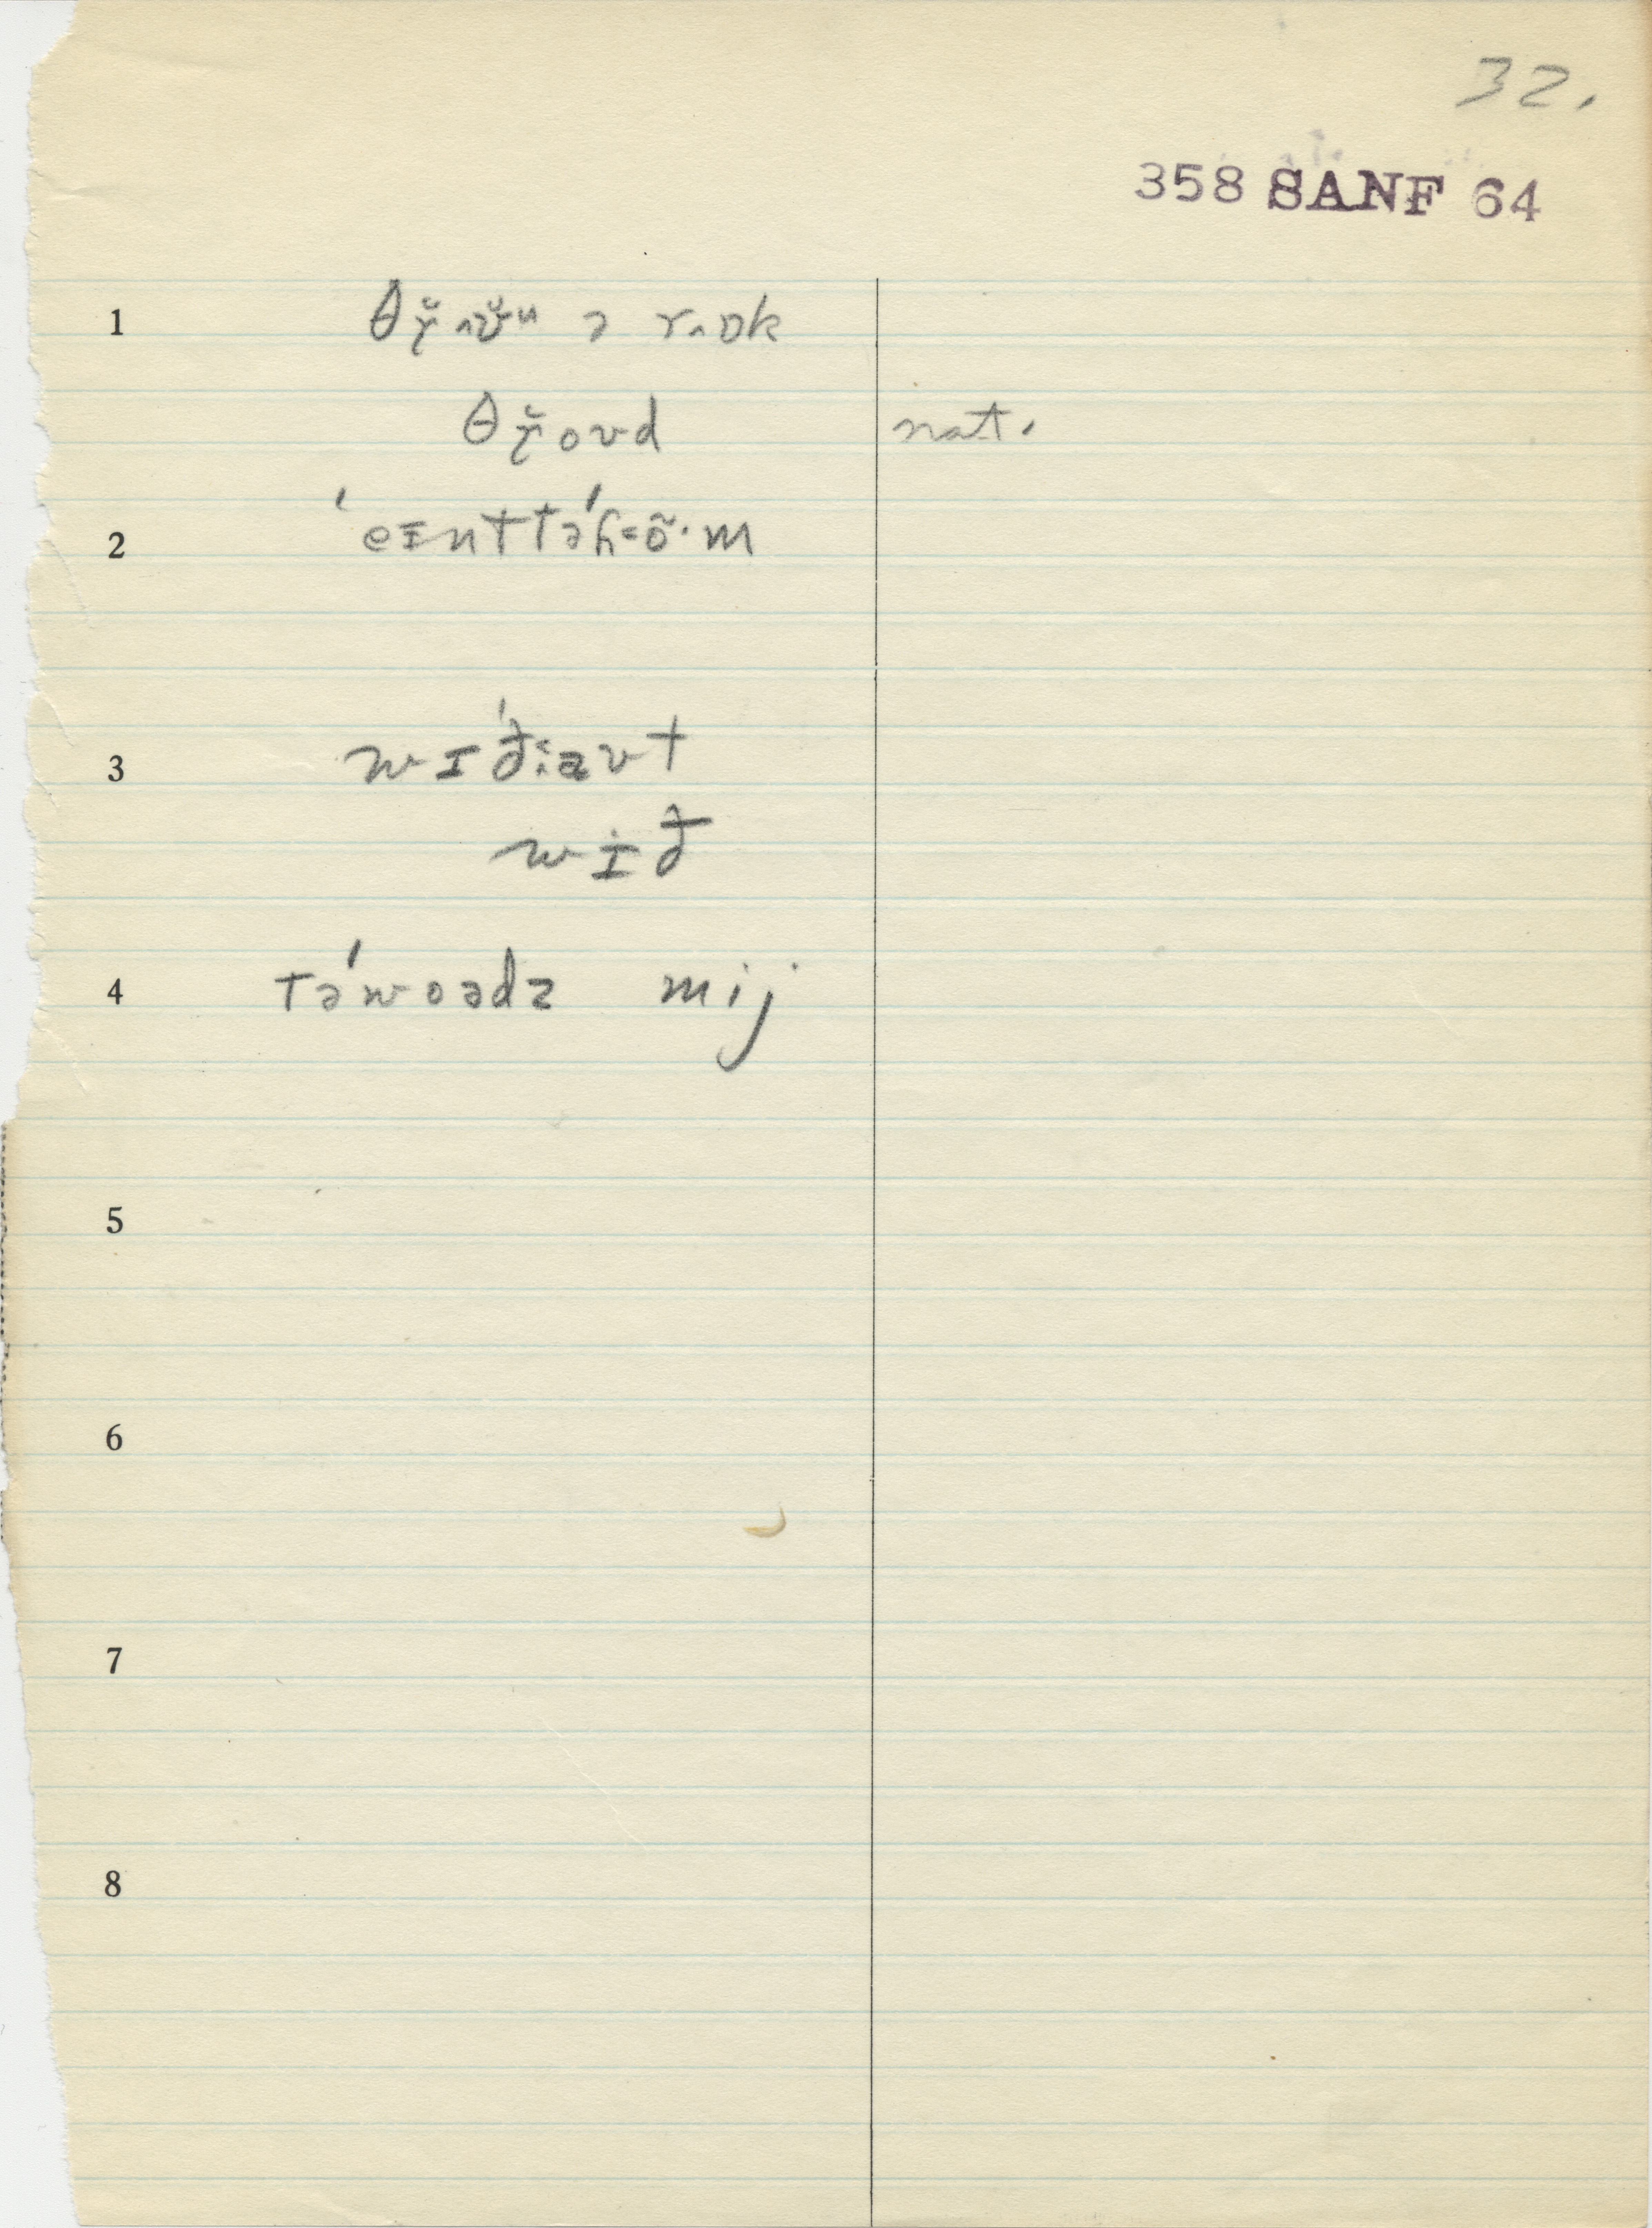 32.
358 SANF 64
1 θɤ̆ʌʊ̆u ə rʌɒk
θɤ̆oʊd nat.
2 ˈeɪnttəˈɦɛõ·m
3 wɪˈðːaʊt
wɪð
4 təˈwoədz mij
5
6
7
8